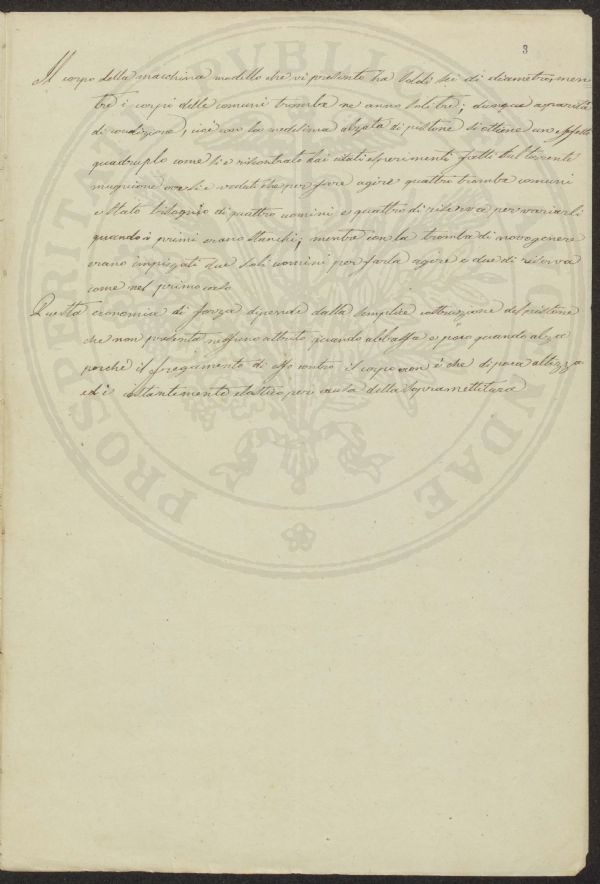 3
Il corpo della macchina modello che vi presento ha soldi sei di diametro, men
tre i corpi delle comuni trombe ne anno soli tre; dunque a parità
di condizione, cioè con la medesima alzata di pistone si ottiene un effetto
quadruplo come si è riscontrato dai citati esperimenti fatti sul torrente
mugnione ove si è veduto che per fare agire quattro trombe comuni
è stato bisogno di quattro uomini e quattro di riserva per variarli
quando i primi erano stanchi; mentre con la tromba di nuovo genere
erano impiegati due soli uomini per farla agire e due di riserva
come nel primo caso
Questa economia di forza dipende dalla semplice costruzione del pistone
che non presenta nessuno attrito quando abbassa e poco quando alza
perche il fregamento di esso contro il corpo non è che di poca altezza
ed è costantemente elastico per causa della sopramettitura
PROSPERITATI PVBLICAE AVGENDAE